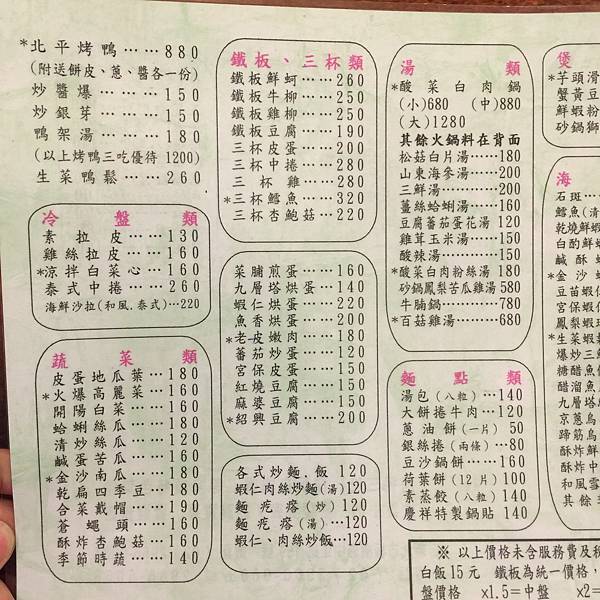 *北平烤鴨……880
(附送餅皮、蔥、醬各一份)
炒醬爆……150
炒銀芽……150
鴨架湯……180
(以上烤鴨三吃優待 1200)
生菜鴨鬆……260
冷盤類
素拉皮……130
雞絲拉皮…160
*涼拌白菜心…160
泰式中捲…260
海鮮沙拉(和風.泰式)…220
蔬菜類
皮蛋地瓜葉…180
*火爆高麗菜…160
開陽白菜…160
蛤蜊絲瓜…180
清炒絲瓜…120
鹹蛋苦瓜…160
*金沙南瓜…180
乾扁四季豆…180
合菜戴帽…190
蒼蠅頭…160
酥炸杏鮑菇…160
季節時蔬…140
鐵板、三杯類
鐵板鮮蚵…260
鐵板牛柳…250
鐵板雞柳…250
鐵板豆腐…190
三杯皮蛋…200
三杯中捲…280
三杯雞…280
*三杯鱈魚…320
三杯杏鮑菇…220
菜脯煎蛋…160
九層塔烘蛋…140
蝦仁烘蛋…220
魚香烘蛋…200
*老皮嫩肉…180
蕃茄炒蛋…120
宮保皮蛋…150
紅燒豆腐…150
麻婆豆腐…150
*紹興豆腐…200
各式炒麵.飯 120
蝦仁肉絲炒麵(湯)120
麵疙瘩(炒)…120
麵疙瘩(湯)…120
蝦仁、肉絲炒飯…120
湯類
*酸菜白肉鍋
(小)680 (中)880
(大)1280
其餘火鍋料在背面
松菇白片湯……180
山東海參湯……200
三鮮湯………200
薑絲蛤蜊湯……150
豆腐蕃茄蛋花湯 120
雞茸玉米湯……150
酸辣湯………150
*酸菜白肉粉絲湯 180
砂鍋鳳梨苦瓜雞湯 580
牛腩鍋………780
*百菇雞湯………680
麵點類
湯包(八粒)…140
大餅捲牛肉…120
蔥油餅(一片) 50
銀絲捲(兩條)…80
豆沙鍋餅…160
荷葉餅(12片)100
素蒸餃(八粒)140
慶祥特製鍋貼 140
煲
*芋頭滑
蟹黃豆
鮮蝦粉
砂鍋獅
海
石斑…
鱈魚(清
乾燒鮮蝦
白酌鮮蝦
鹹酥
*金沙
豆苗蝦仁
宮保蝦仁
鳳梨蝦球
*生菜蝦
爆炒三鮮
糖醋魚
醋溜魚
九層塔
京蔥烏
蹄筋烏
酥炸鮮
酥炸中
和風雪
其餘
※ 以上價格未含服務費及稅
白飯15元 鐵板為統一價格,
盤價格 x1.5=中盤 x2=